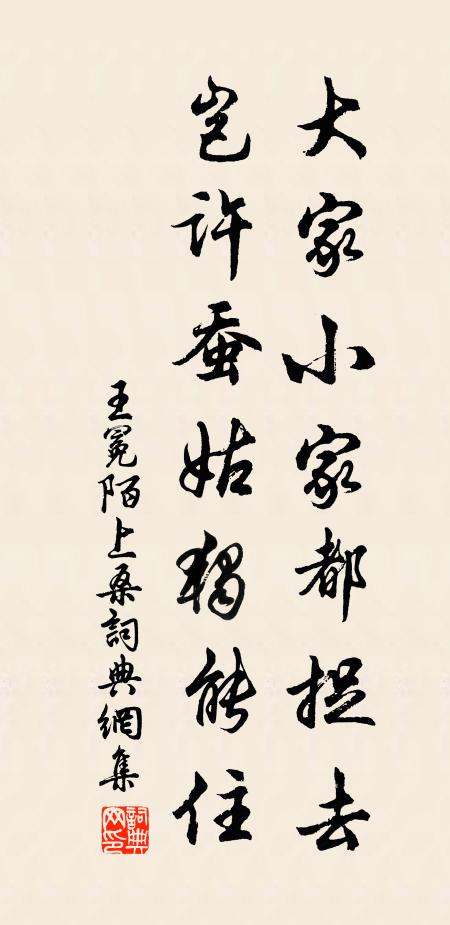 大家小家都捉去
岂许蚕姑独能住
王冕陌上桑詞典網集
詞典网印